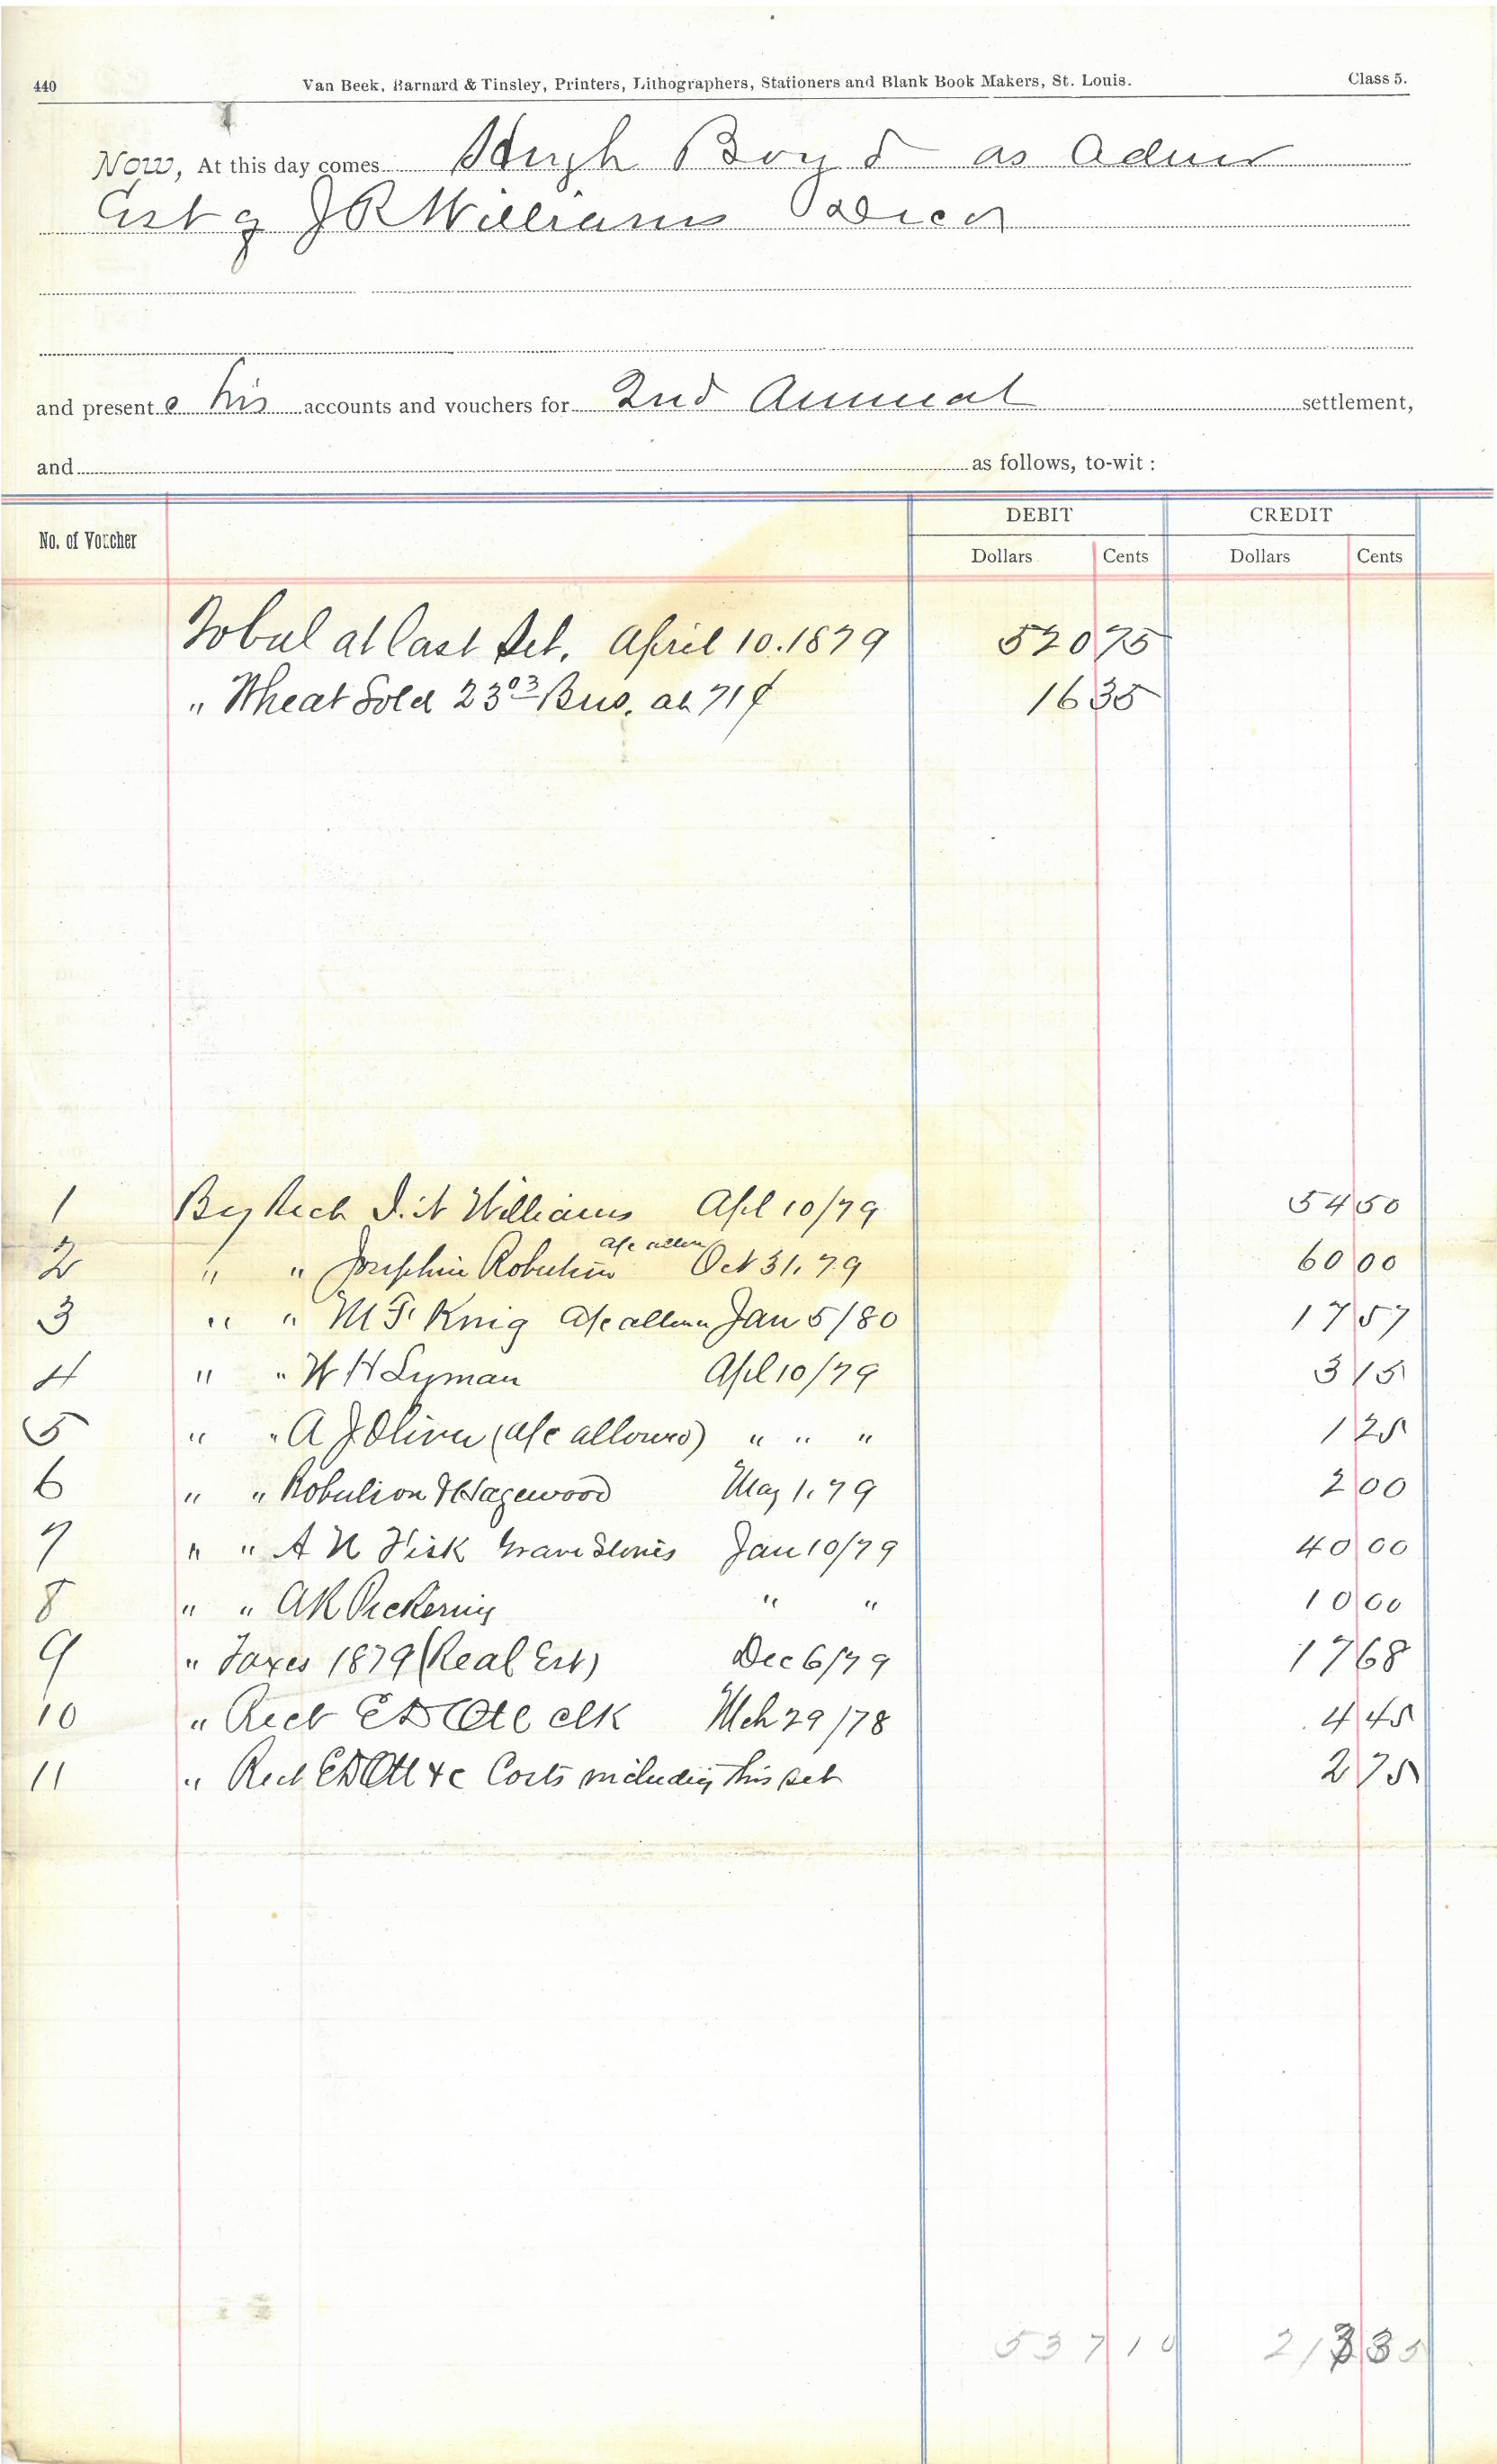 440 Van Beek, Barnard & Tinsley, Printers, Lithographers, Stationers and Blank Book Makers, St. Louis. Class 5.
Now, At this day comes Hugh Boyd as Admr
Est of J R Williams
and present s his accounts and vouchers for 2nd Annual settlement,
and as follows, to-wit :
No. of Voucher DEBIT CREDIT
Dollars Cents Dollars Cents
To bal at last Set. April 10. 1879 520 75
" Wheat Sold 23 03 Bus. at 71 ¢ 16 35
1 By Rect Williams Apl 10/79 54 50
2 " " Josephine Oct 31, 79 60 00
3 " " M F King Jan 5/80 17 57
4 " " W H Lyman Apl 10/79 3 15
5 " " A J Oliver (a/c allowed) " " " 1 25
6 " " & Hagewood May 1, 79 2 00
7 " " A N Fisk Grave Stones Jan 10/79 40 00
8 " " A K Pickering " " 10 00
9 " Taxes 1879 (Real Est) Dec 6/79 17 68
10 " Rect clk Mch 29/78 4 45
11 " Rect Costs including this set 2 75
537 10 213 35